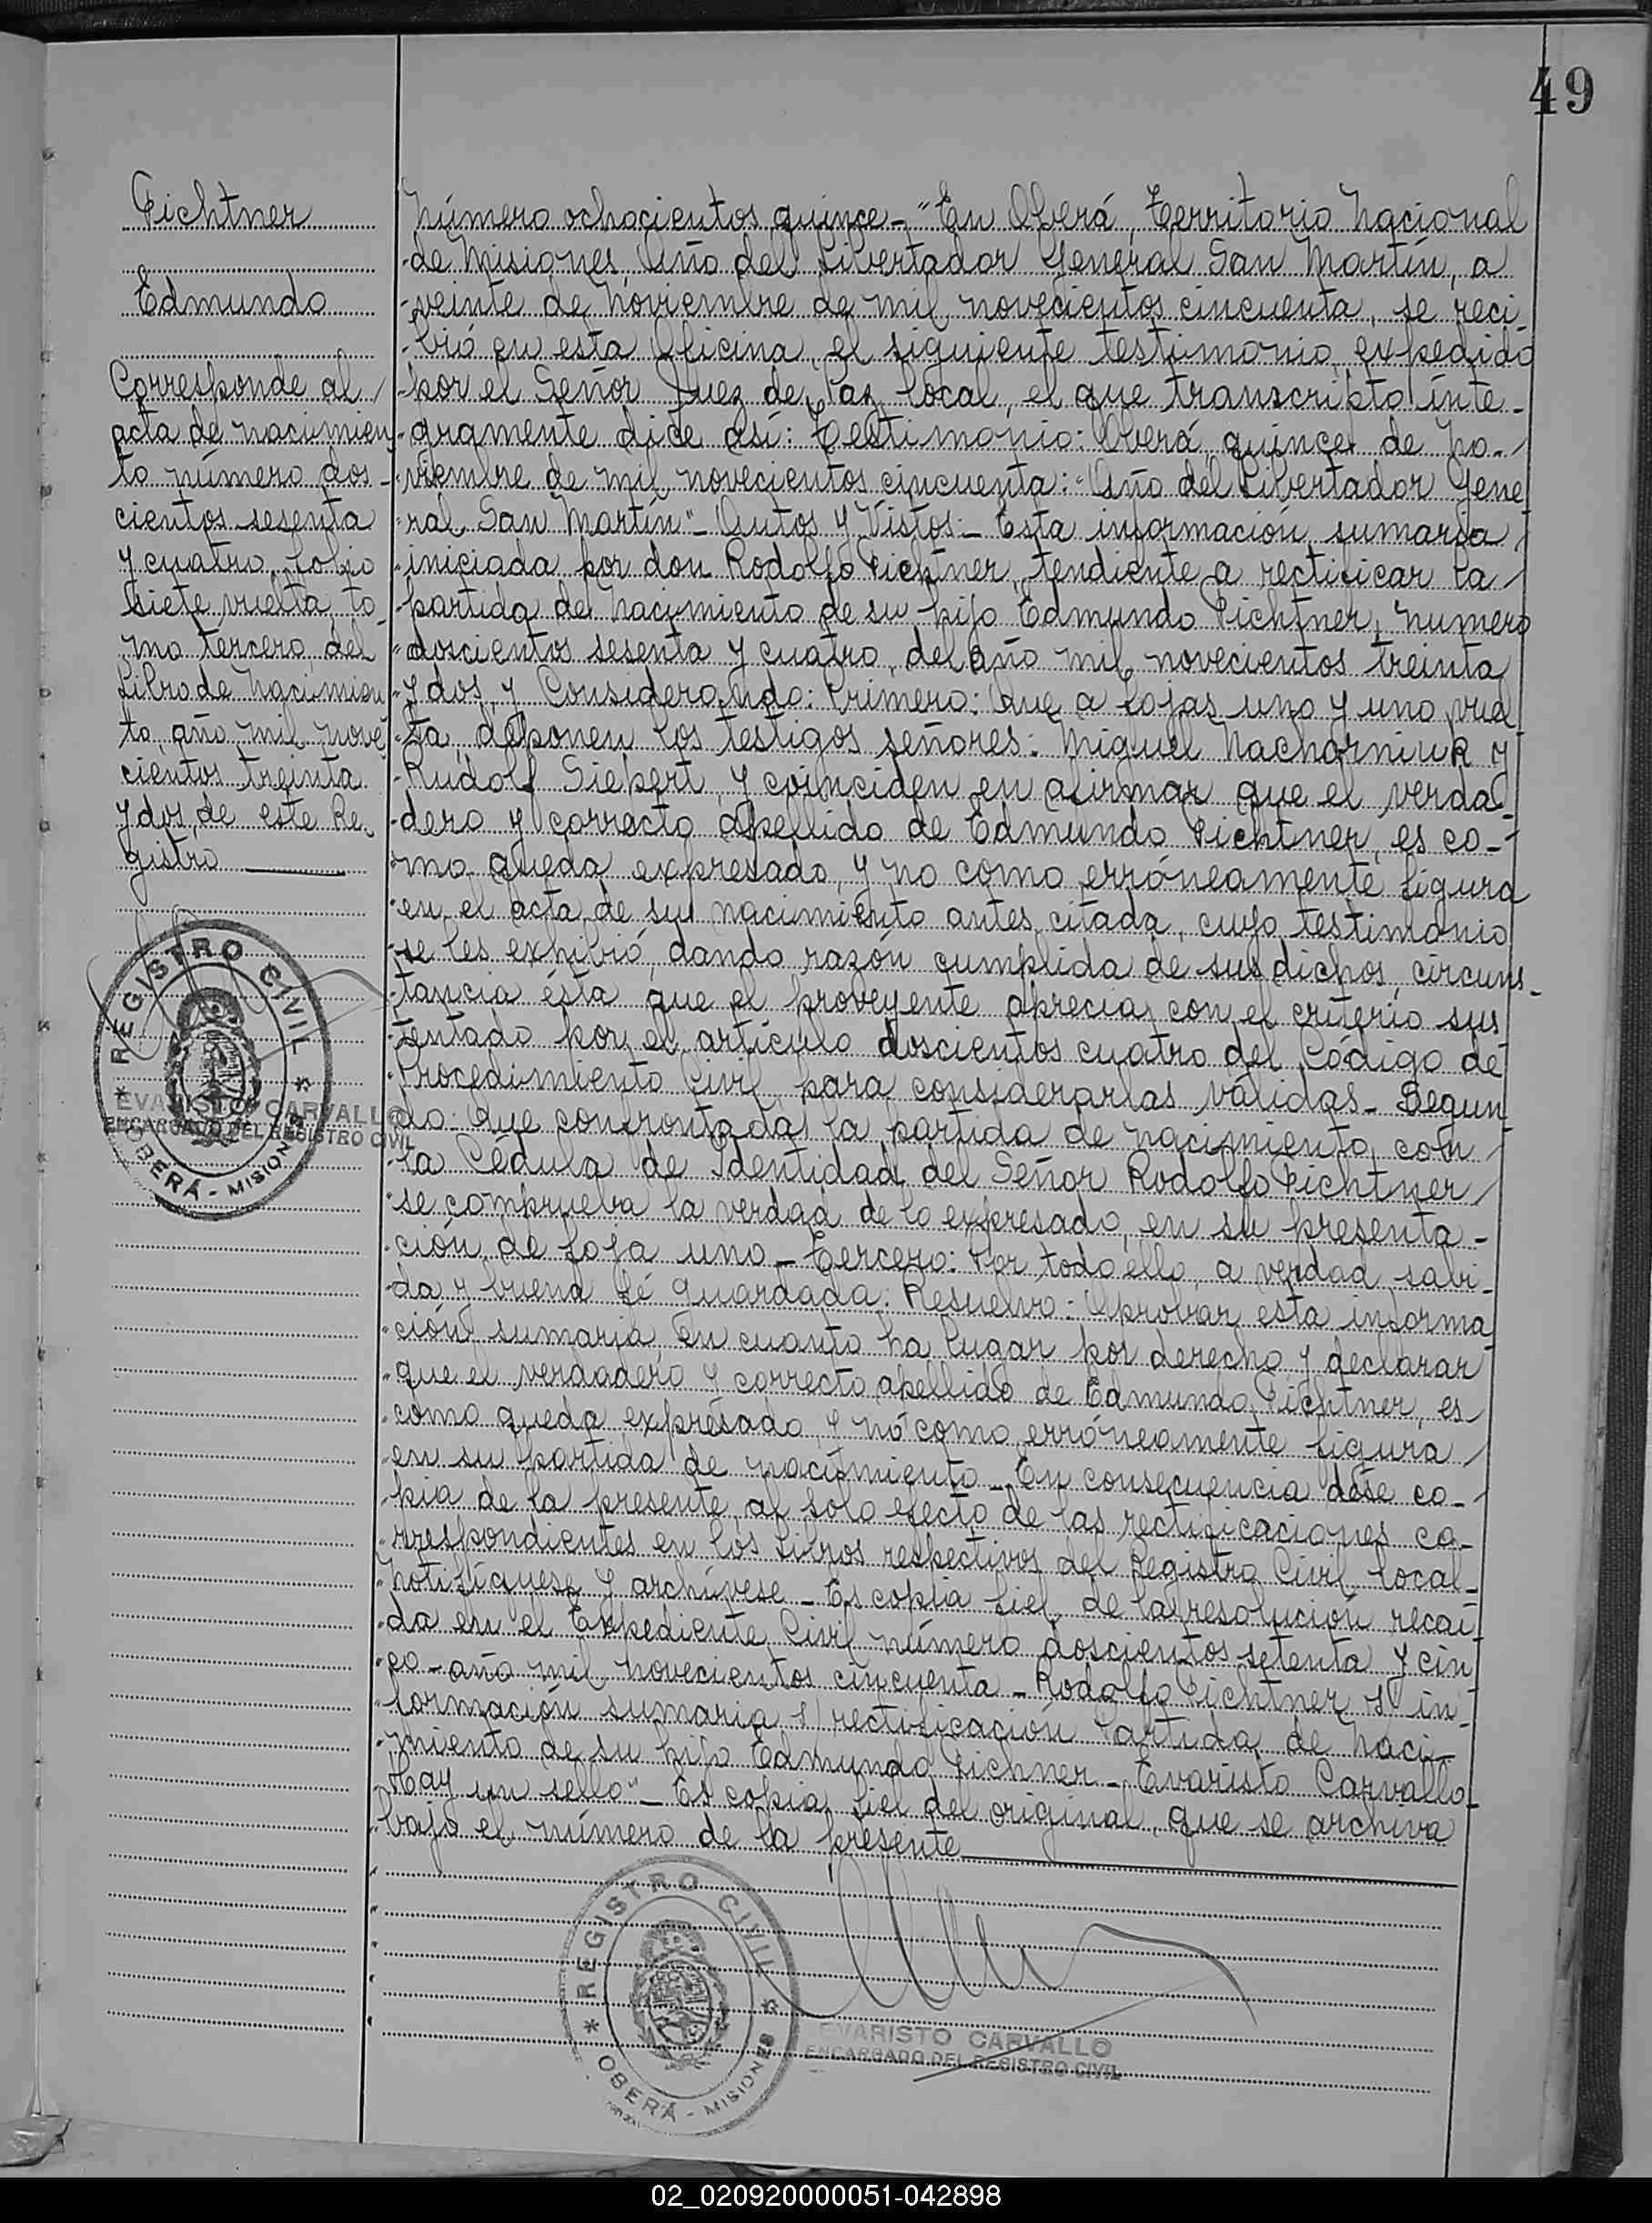 49
Fichtner
Edmundo
Corresponde al
acta de nacimien
to número dos-
cientos sesenta
y cuatro, folio
siete vuelta, to
mo tercero, del
Libro de Nacimien
to, año mil nove
cientos treinta
y dos, de este Re-
gistro
REGISTRO CIVIL
OBERÁ - MISIONES
EVARISTO CARVALLO
ENCARGADO DEL REGISTRO CIVIL
Número ochocientos quince - "En Oberá, Territorio Nacional
de Misiones, Año del Libertador General San Martín, a
veinte de Noviembre de mil novecientos cincuenta, se reci-
bió en esta Oficina, el siguiente testimonio, expedido
por el Señor Juez de Paz local, el que transcripto ínte-
gramente dice así: Testimonio: Oberá, quince de No-
viembre de mil novecientos cincuenta: "Año del Libertador Gene
ral San Martín" - Autos y Vistos: - Esta información sumaria
iniciada por don Rodolfo Fichtner, tendiente a rectificar la
partida de nacimiento de su hijo Edmundo Fichtner, número
doscientos sesenta y cuatro, del año mil novecientos treinta
y dos, y Considerando: Primero: Que a fojas uno y uno vuel
ta, deponen los testigos señores: Miguel Nacharniuk y
Rudolf Siepert, y coinciden en afirmar que el verda-
dero y correcto apellido de Edmundo Fichtner, es co-
mo queda expresado, y no como erróneamente figura
en el acta de su nacimiento antes citada, cuyo testimonio
se les exhibió, dando razón cumplida de sus dichos, circuns-
tancia ésta que el proveyente aprecia con el criterio sus
tentado por el artículo doscientos cuatro del Código de
Procedimiento Civil, para considerarlas válidas - Segun
do: Que confrontada la partida de nacimiento con
la Cédula de Identidad del Señor Rodolfo Fichtner
se comprueba la verdad de lo expresado, en su presenta-
ción de foja uno - Tercero: Por todo ello, a verdad sabi-
da y buena fé guardada: Resuelvo: Aprobar esta informa
ción sumaria en cuanto ha lugar por derecho y declarar
que el verdadero y correcto apellido de Edmundo Fichtner, es
como queda expresado, y nó como erróneamente figura
en su partida de nacimiento - En consecuencia dése co-
pia de la presente, al solo efecto de las rectificaciones co-
rrespondientes en los Libros respectivos del Registro Civil local-
Notifíquese y archívese - Es copia fiel, de la resolución recaí
da en el Expediente Civil número doscientos setenta y cin
co - año mil novecientos cincuenta - Rodolfo Fichtner s/ in-
formación sumaria s/ rectificación Partida de Naci-
miento de su hijo Edmundo Fichner - Evaristo Carvallo-
Hay un sello" - Es copia fiel del original, que se archiva
bajo el número de la presente
REGISTRO CIVIL
OBERÁ - MISIONES
EVARISTO CARVALLO
ENCARGADO DEL REGISTRO CIVIL
02_020920000051-042898